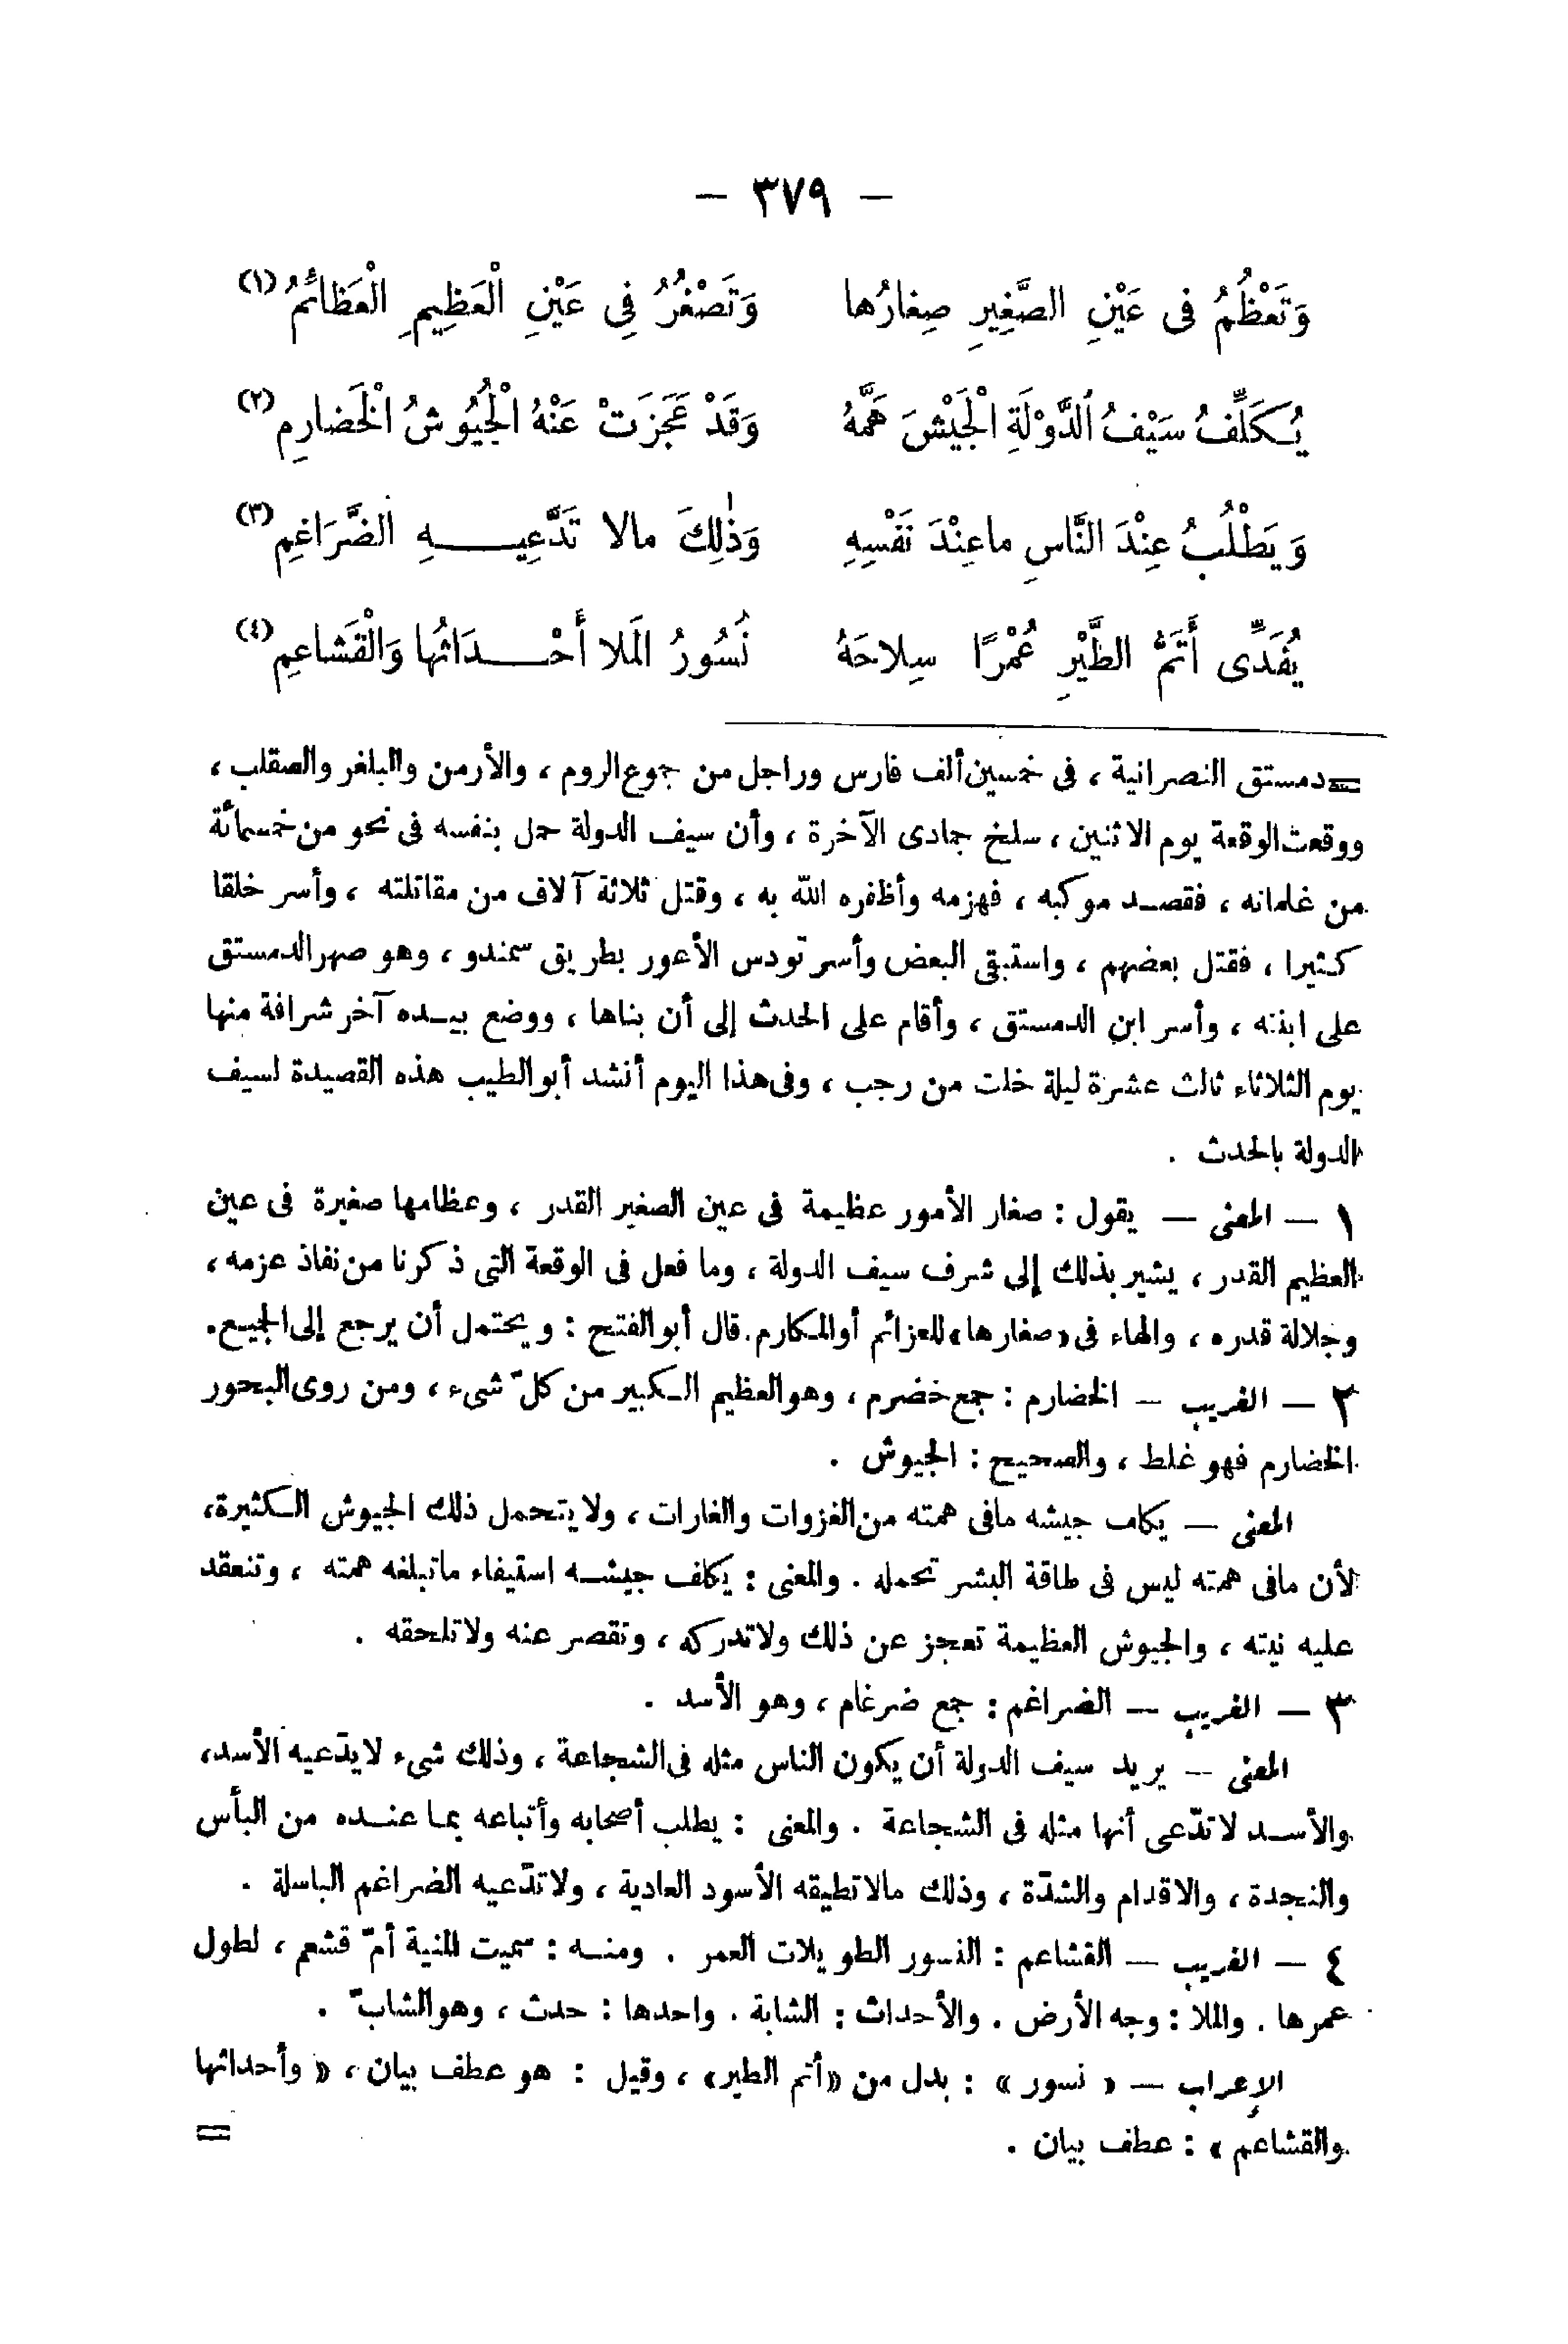 — ٣٧٩ —
وَتَعْظُمُ فى عَيْنِ الصَّغِيرِ صِغارُها وَتَصْغُرُ فِى عَيْنِ الْعَظِيمِ الْعَظائمُ (١)
يُكَلِّفُ سَيْفُ الدَّوْلَةِ الْجَيْشَ هَمَّهُ وَقَدْ عَجَزَتْ عَنْهُ الْجُيُوشُ الْخَضارِم (٢)
وَيَطْلُبُ عِنْدَ النَّاسِ ماعِنْدَ نَفْسِهِ وَذٰلِكَ مالا تَدَّعِيهِ الضَّرَاغِم (٣)
يُفَدِّى أَتَمُّ الطَّيْرِ عُمْرًا سِلاحَهُ نُسُورُ المَلا أَحْدَاثُها وَالْقَشاعِم (٤)
=دمستق النصرانية ، فى خمسين ألف فارس وراجل من جموع الروم ، والأرمن والبلغر والصقلب ،
ووقعت الوقعة يوم الاثنين ، سلخ جمادى الآخرة ، وأن سيف الدولة حمل بنفسه فى نحو من خمسمائة
من غلمانه ، فقصد موكبه ، فهزمه وأظفره الله به ، وقتل ثلاثة آلاف من مقاتلته ، وأسر خلقا
كثيرا ، فقتل بعضهم ، واستبقى البعض وأسر تودس الأعور بطريق سمندو ، وهو صهر الدمستق
على ابنته ، وأسر ابن الدمستق ، وأقام على الحدث إلى أن بناها ، ووضع بيده آخر شرافة منها
يوم الثلاثاء ثالث عشرة ليلة خلت من رجب ، وفى هذا اليوم أنشد أبو الطيب هذه القصيدة لسيف
الدولة بالحدث .
١ — المعنى — يقول : صغار الأمور عظيمة فى عين الصغير القدر ، وعظامها صغيرة فى عين
العظيم القدر ، يشير بذلك إلى شرف سيف الدولة ، وما فعل فى الوقعة التى ذكرنا من نفاذ عزمه ،
وجلالة قدره ، والهاء فى «صغارها» للعزائم أو المكارم. قال أبو الفتح : ويحتمل أن يرجع إلى الجميع.
٢ — الغريب — الخضارم : جمع خضرم ، وهو العظيم الكبير من كلّ شىء ، ومن روى البحور
الخضارم فهو غلط ، والصحيح : الجيوش .
المعنى — يكلف جيشه مافى همته من الغزوات والغارات ، ولا يتحمل ذلك الجيوش الكثيرة،
لأن مافى همته ليس فى طاقة البشر تحمله . والمعنى : يكلف جيشه استيفاء ماتبلغه همته ، وتنعقد
عليه نيته ، والجيوش العظيمة تعجز عن ذلك ولاتدركه ، وتقصر عنه ولاتلحقه .
٣ — الغريب — الضراغم : جمع ضرغام ، وهو الأسد .
المعنى — يريد سيف الدولة أن يكون الناس مثله فى الشجاعة ، وذلك شىء لايدّعيه الأسد،
والأسد لاتدّعى أنها مثله فى الشجاعة . والمعنى : يطلب أصحابه وأتباعه بما عنده من البأس
والنجدة ، والاقدام والشدّة ، وذلك مالاتطيقه الأسود العادية ، ولاتدّعيه الضراغم الباسلة .
٤ — الغريب — القشاعم : النسور الطويلات العمر . ومنه : سميت المنية أمّ قشعم ، لطول
عمرها . والملا : وجه الأرض . والأحداث : الشابة . واحدها : حدث ، وهو الشابّ .
الإعراب — « نسور » : بدل من «أتم الطير» ، وقيل : هو عطف بيان ، « وأحداثها
والقشاعم » : عطف بيان .
=